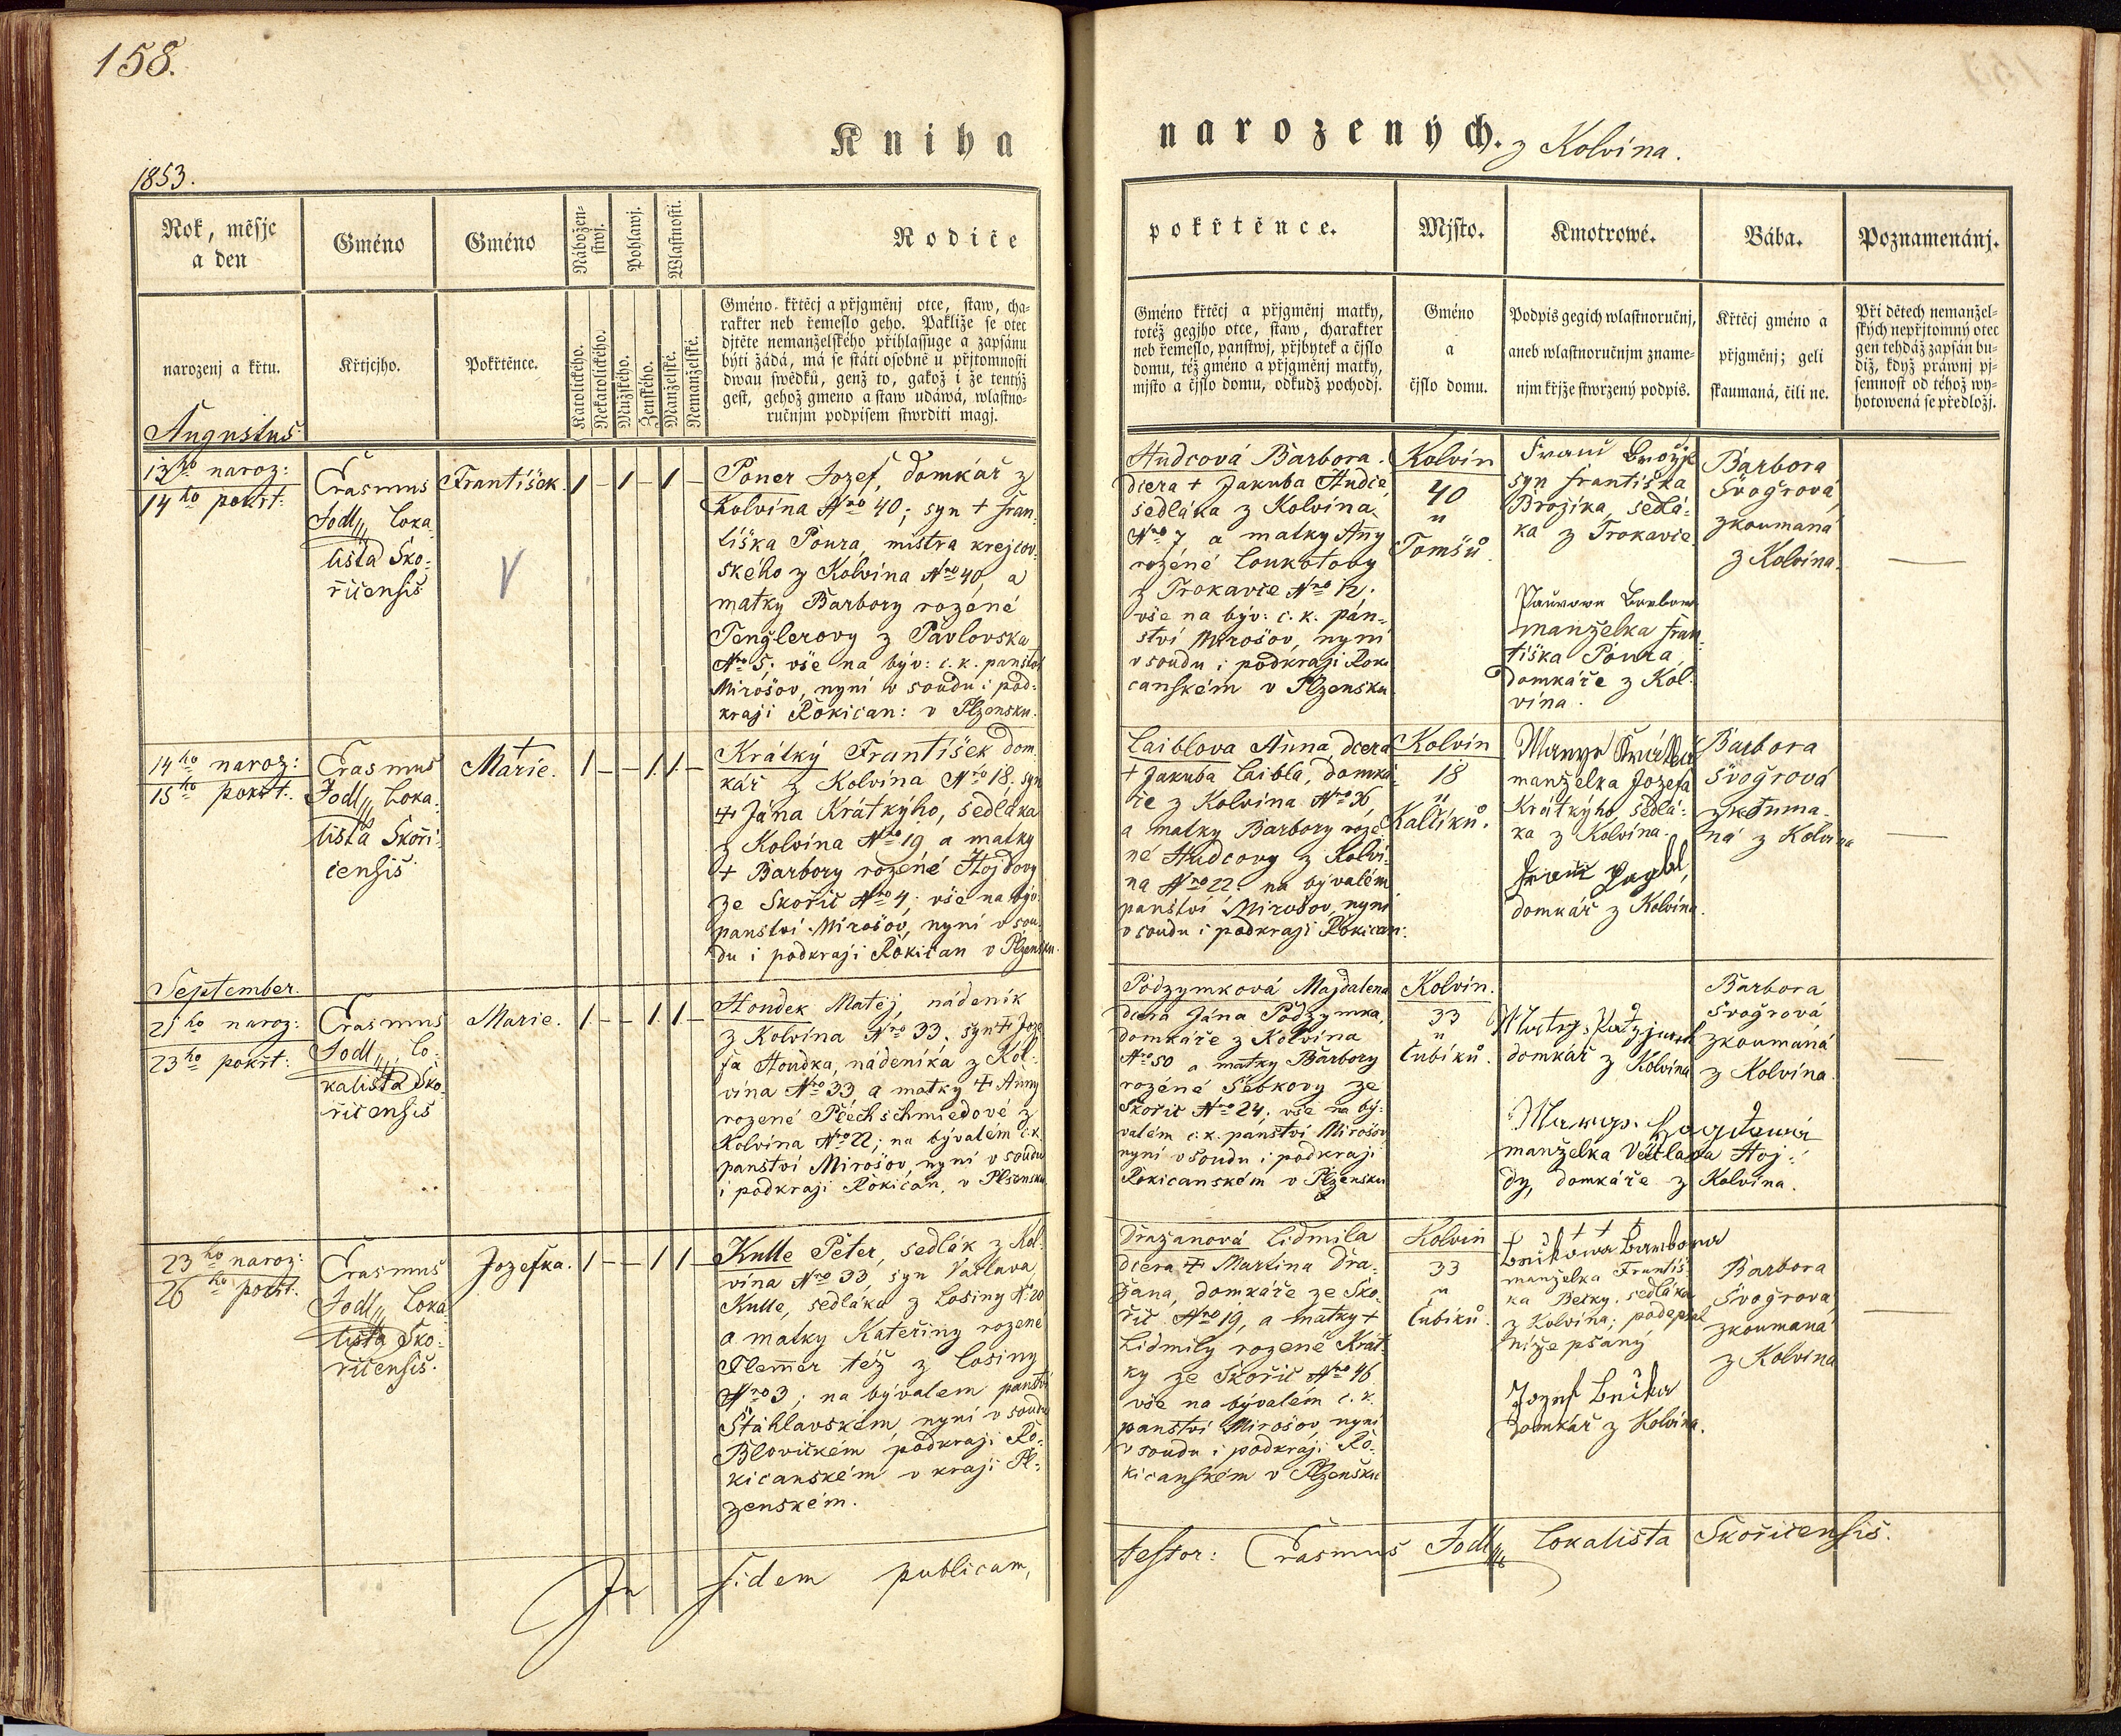 158.
Kniha
narozených. z Kolvína.
1853.
Rok, měsjc
a den
narozenj a křtu.
Gméno
Křtjcjho.
Gméno
Pokřtěnce.
Nábožen-
stwj.
Pohlawj.
Wlastnosti.
Katolického.
Nekatolického.
Mužského.
Ženského.
Manželské.
Nemanželské.
Rodiče
Gméno křtěcj a přjgměnj otce, staw, cha-
rakter neb řemeslo geho. Pakliže se otec
djtěte nemanželského přihlassuge a zapsánu
býti žádá, má se státi osobně u přjtomnosti
dwau swědků, genž to, gakož i že tentýž
gest, gehož gmeno a staw udáwá, wlastno-
ručnjm podpisem stwrditi magj.
pokřtěnce.
Gméno křtěcj a přjgměnj matky,
totéž gegjho otce, staw, charakter
neb řemeslo, panstwj, přjbytek a čjslo
domu, též gméno a přjgměnj matky,
mjsto a čjslo domu, odkudž pochodj.
Mjsto.
Gméno
a
čjslo domu.
Kmotrowé.
Podpis gegich wlastnoručnj,
aneb wlastnoručnjm zname-
njm křjže stwrzený podpis.
Bába.
Křtěcj gméno a
přjgměnj; geli
skaumaná, čili ne.
Poznamenánj.
Při dětech nemanžel-
ských nepřjtomný otec
gen tehdáž zapsán bu-
diž, když práwnj pj-
semnost od téhož wy-
hotowená se předložj.
Augustus
13ho naroz:
14ho pokřt:
Erasmus
Jodl, Loka-
lista Sko-
řičensis
František.
1 – 1 – 1 –
V
Poner Jozef, domkář z
Kolvína Nro 40; syn + Fran-
tiška Poura, mistra krejčov-
ského z Kolvína Nro 40, a
matky Barbory rozéné
Tenglerovy z Pavlovska
Nro 5; vše na býv: c. k. panství
Mirošov, nyní v soudu i pod-
kraji Rokican: v Plzensku.
Hudcová Barbora.
dcera + Jakuba Hudce,
sedláka z Kolvína
Nro 7 a matky Anny
rozéné Loukotovy
z Trokavce Nro 12;
vše na býv: c. k. pán-
ství Mirošov, nyní
v soudu i podkraji Roki
canském v Plzensku
Kolvín
40
u
Tomšů.
syn Františka
Brožíka, sedlá-
ka z Trokavce
manželka Fran-
tiška Poura,
domkáře z Kol-
vína.
Barbora
Švogrová,
zkoumaná
z Kolvína.
14ho naroz:
15ho pokřt:
Erasmus
Jodl, Loka-
lista Skoři-
čensis
+
Marie.
1 – – 1 1 –
Krátký František dom-
kář z Kolvína Nro 18, syn
+ Jána Krátkýho, sedláka
z Kolvína Nro 19, a matky
+ Barbory rozéné Hojdovy
ze Skořic Nro 4; vše na býv:
panství Mirošov, nyní v sou-
du i podkraji Rokican v Plzensku.
Laiblova Anna, dcera
+ Jakuba Laibla, domká-
ře z Kolvína Nro 36,
a matky Barbory roze-
né Hudcovy z Kolví-
na Nro 22. na bývalém
panství Mirošov, nyní
v soudu i podkraji Rokican:
Kolvín
18
u
manželka Jozefa
Krátkýho, sedlá-
ka z Kolvína.
domkář z Kolvína.
Barbora
Švogrová
zkouma-
ná z Kolvína
September.
21ho naroz:
23ho pokřt:
Erasmus
Jodl, Lo-
kalista Sko-
řičensis
Marie.
1 – – 1 1 –
Houdek Matěj, nádeník
z Kolvína Nro 33, syn + Joze-
fa Houdka, nádeníka z Kol-
vína Nro 33, a matky + Anny
rozené Plechschmiedové z
Kolvína Nro 22; na bývalém c. k.
panství Mirošov, nyní v soudu
i podkraji Rokican, v Plzensku
Podzymková Majdalena
dcera Jána Podzymka,
domkáře z Kolvína
Nro 50 a matky Barbory
rozéné Šebkovy ze
Skořic Nro 24; vše na bý-
valém c. k. panství Mirošov
nyní v soudu i podkraji
Rokicanském v Plzensku
Kolvín.
33
u
Čubíků.
domkář z Kolvína
manželka Václava Hoj-
dy, domkáře z Kolvína.
Barbora
Švogrová,
zkoumaná
z Kolvína.
23ho naroz:
26ho pokřt.
Erasmus
Jodl, Loka-
lista Sko-
řičensis.
Jozefka.
1 – – 1 1 –
Kulle Peter, sedlák z Kol-
vína Nro 33, syn Václava
Kulle, sedláka z Losiny N. 20
a matky Kateřiny rozené
Flemmer též z Losiny
Nro 3; na bývalem panství
Štáhlavském, nyní v soudu
Blovickém, podkraji Ro-
kicanském v kraji Pl-
zenském.
Dražanová Lidmila
dcera + Martina Dra-
žana, domkáře ze Sko-
řic Nro 19, a matky +
Lidmily rozené Krát-
ky ze Skořic Nro 46
vše na bývalém c. k.
panství Mirošov, nyní
v soudu i podkraji Ro-
kicanském v Plzensku
Kolvín
33
u
Čubíků.
+ + +
manželka Františ-
ka Betky, sedláka
z Kolvína; podepsal
níže psaný
Jozef
domkář z Kolvína.
Barbora
Švogrova,
zkoumaná
z Kolvína
In fidem publicam,
testor: Erasmus Jodl, Lokalista Skořičensis.